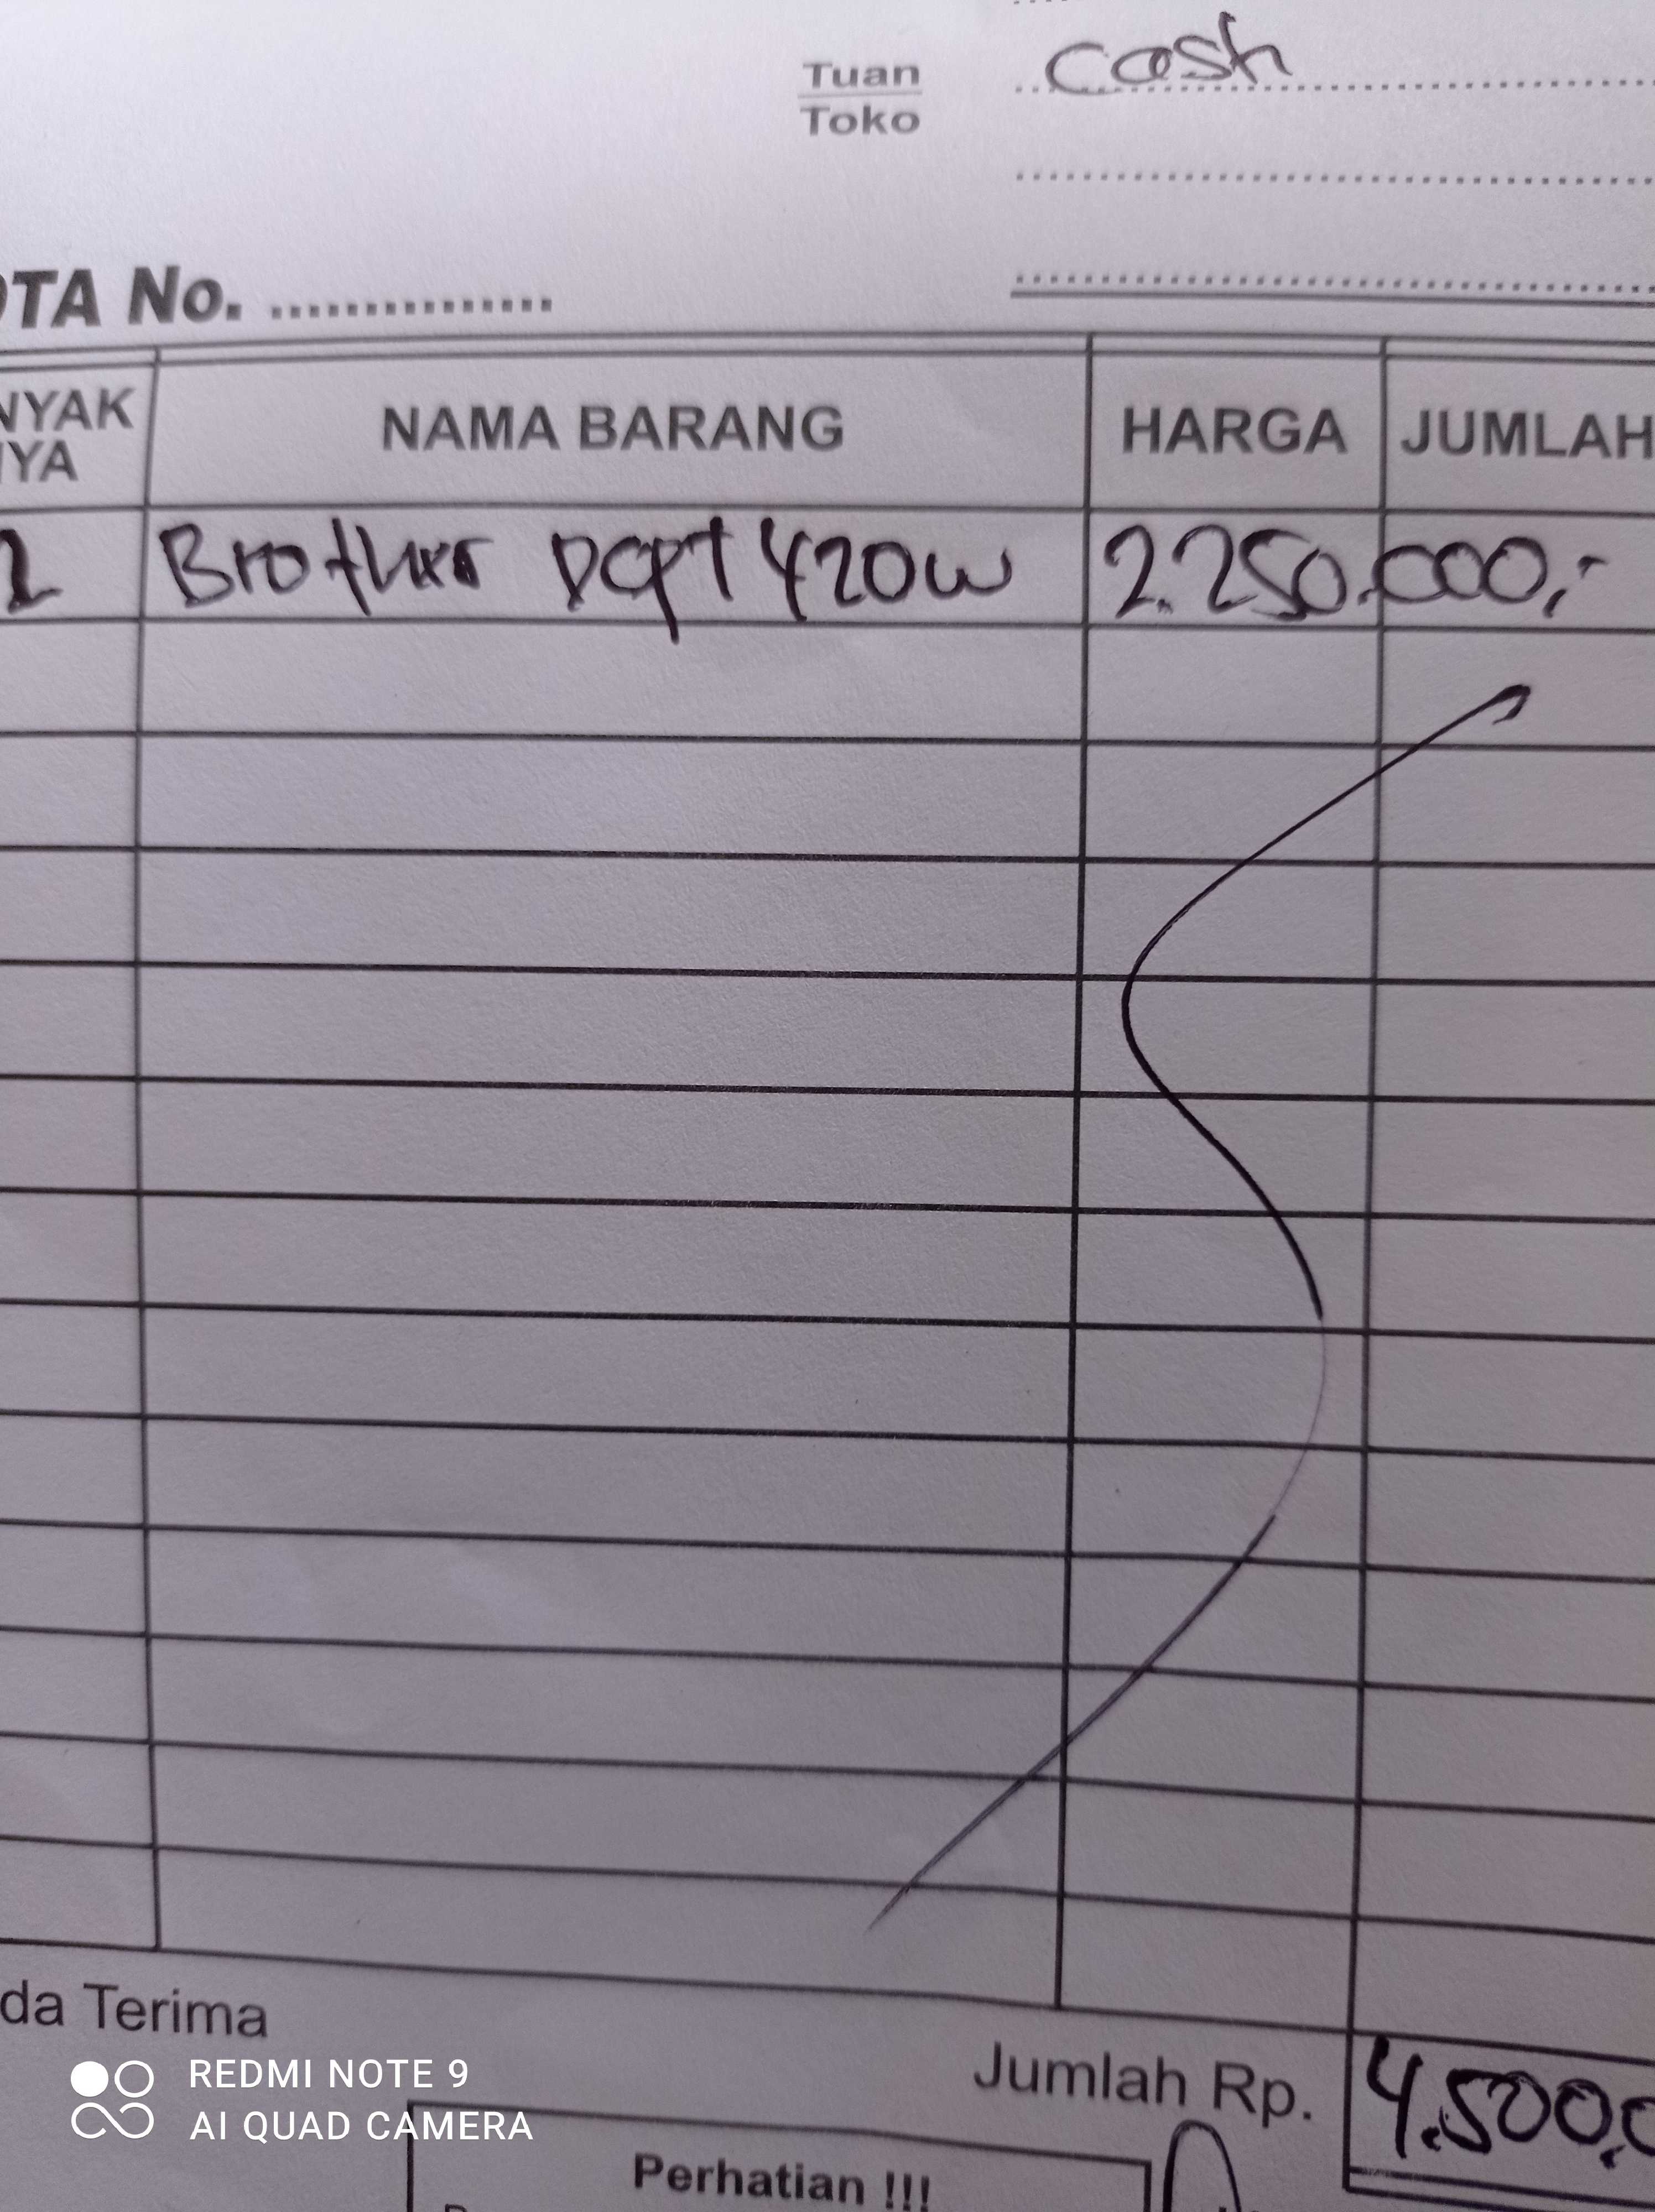 Tuan cash
Toko
OTA No. ...............
NYAK NAMA BARANG HARGA JUMLAH
NYA
2 Brother DCPT 420W 2.250.000,-
da Terima
Jumlah Rp. 4.500.0
REDMI NOTE 9
AI QUAD CAMERA
Perhatian !!!